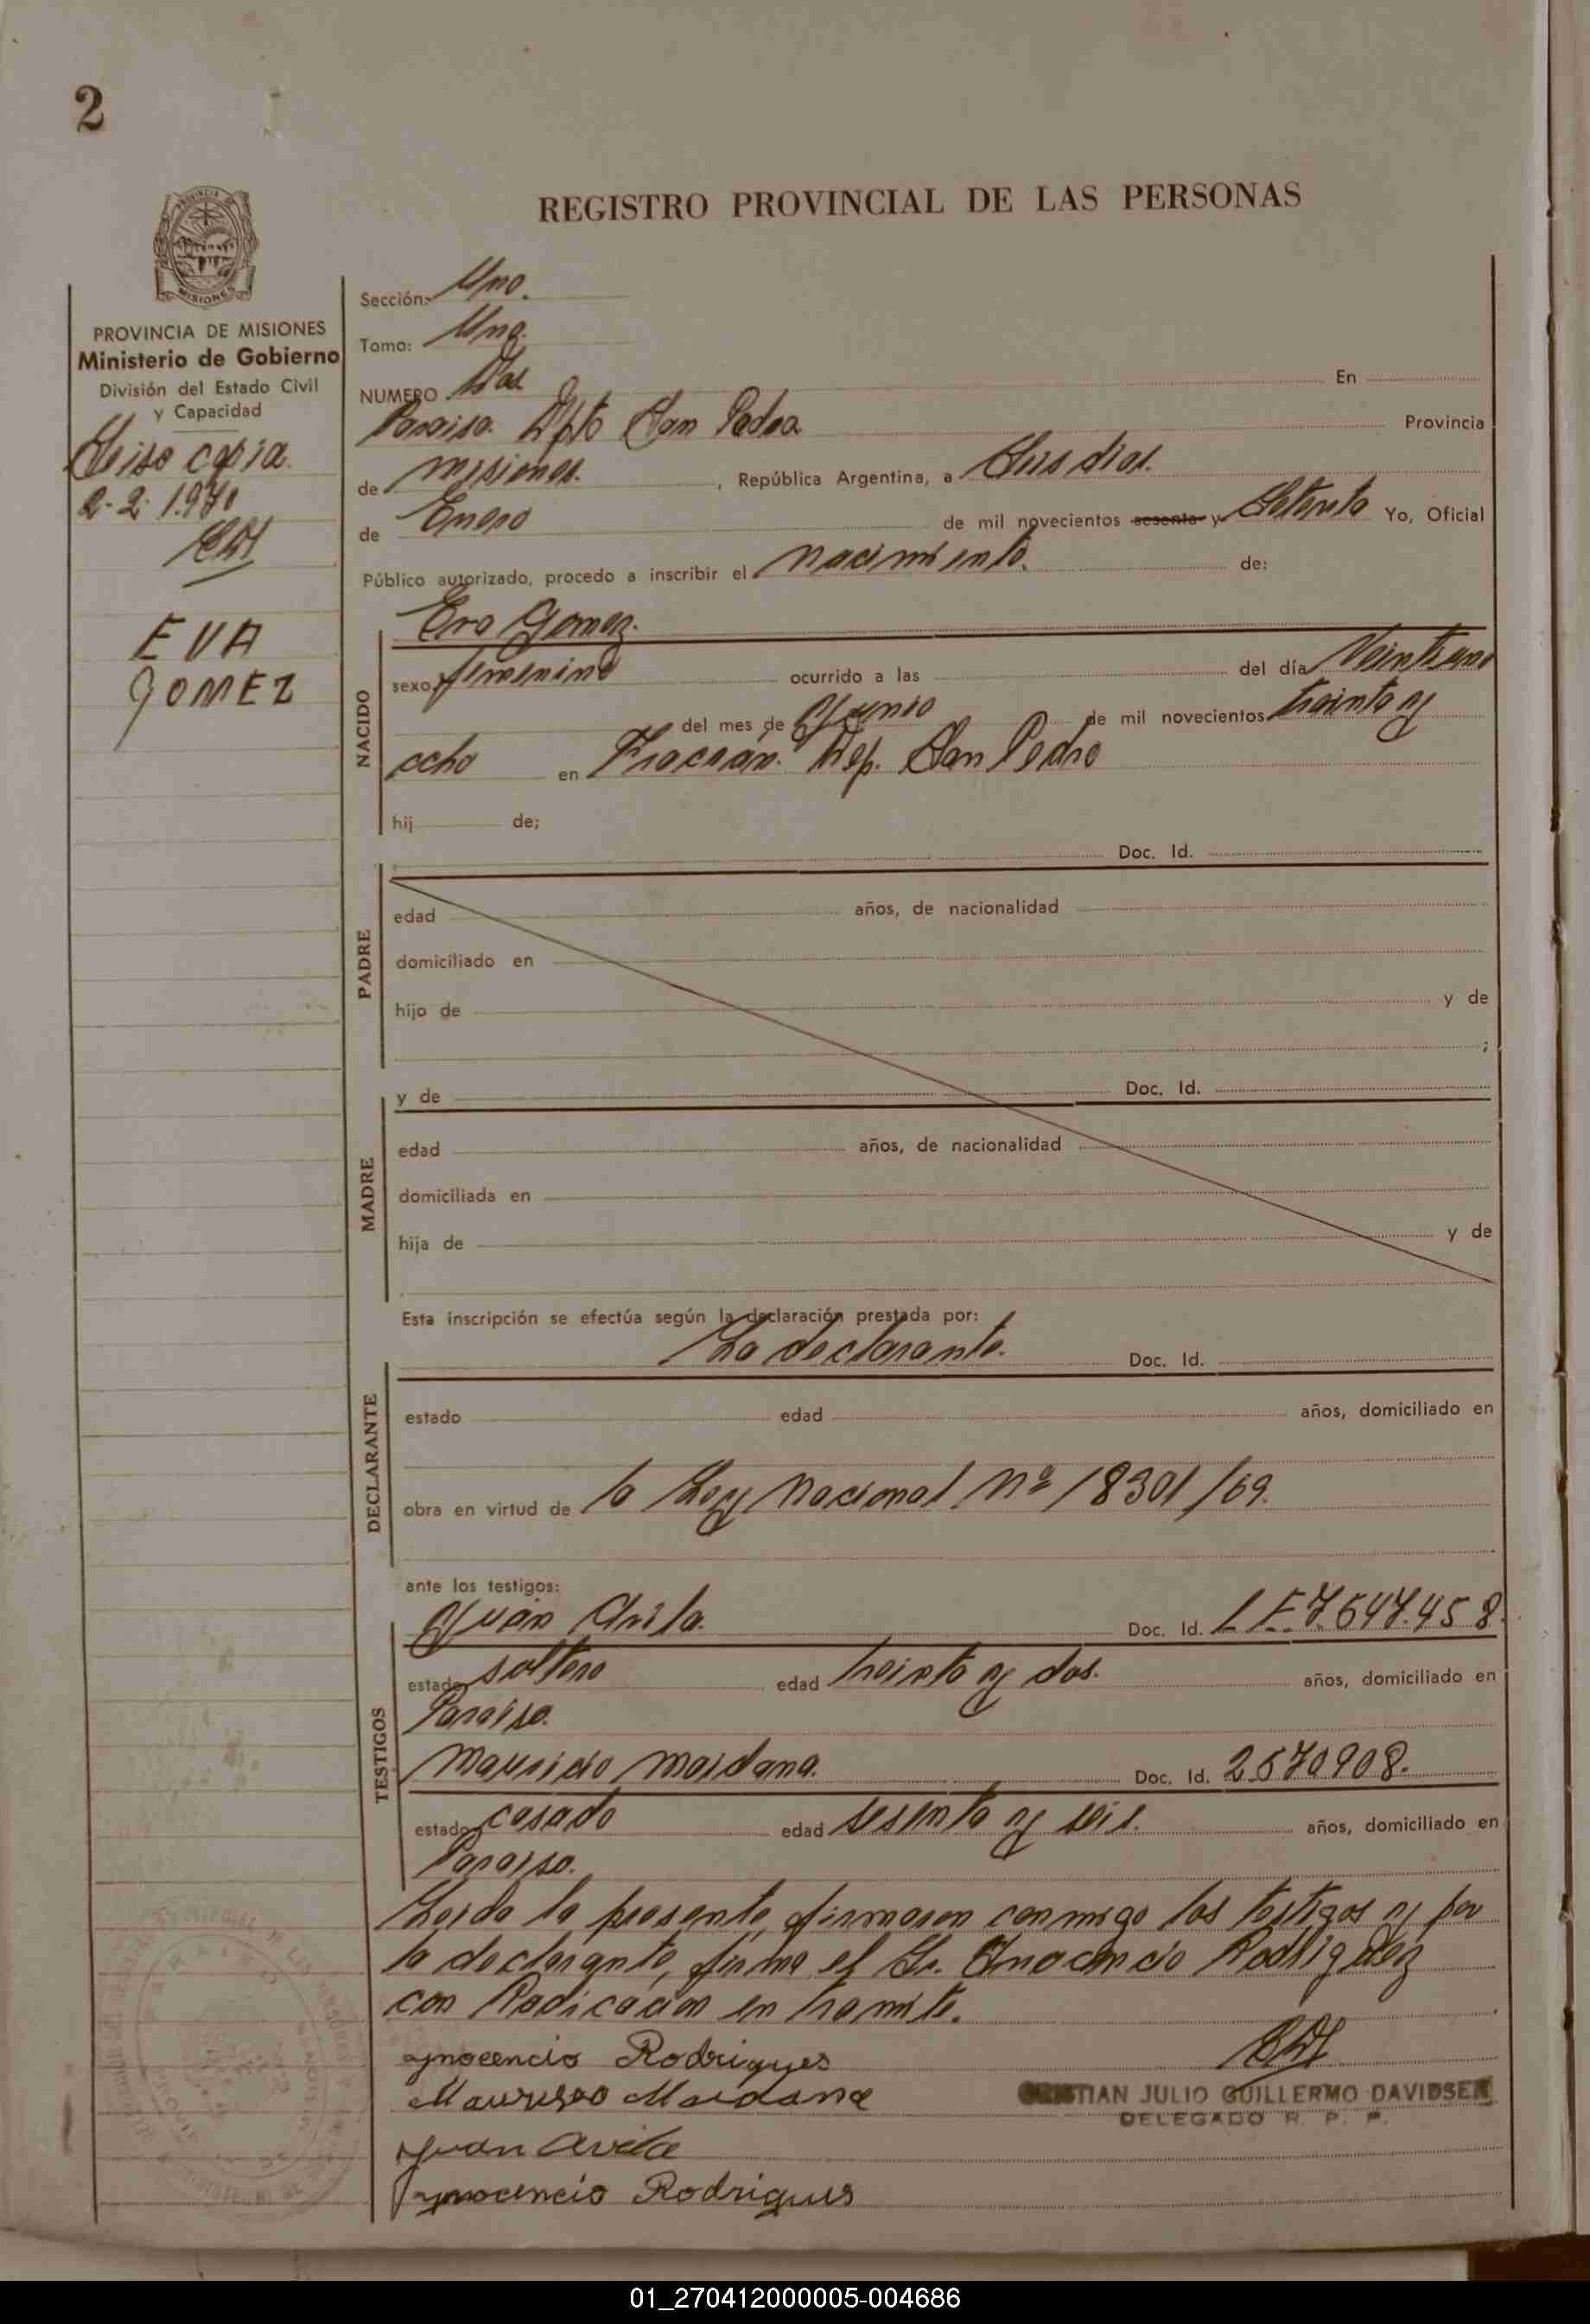 2
REGISTRO PROVINCIAL DE LAS PERSONAS
MISIONES
PROVINCIA DE MISIONES
Ministerio de Gobierno
División del Estado Civil
y Capacidad
copia
2-2-1970
EVA
GOMEZ
Sección: Uno.
Tomo: Uno.
NUMERO Dos En
Paraiso. Dpto San Pedro Provincia
de Misiones. , República Argentina, a Seis dias.
de Enero de mil novecientos sesenta y Setenta Yo, Oficial
Público autorizado, procedo a inscribir el nacimiento. de:
NACIDO
Eva Gomez.
sexo femenino ocurrido a las del día Veintiuno
del mes de Junio de mil novecientos treinta y
ocho en Fracran. Dep. San Pedro
hij de;
PADRE
Doc. Id.
edad años, de nacionalidad
domiciliado en
hijo de y de
;
MADRE
y de Doc. Id.
edad años, de nacionalidad
domiciliada en
hija de y de
Esta inscripción se efectúa según la declaración prestada por:
DECLARANTE
La declarante. Doc. Id.
estado edad años, domiciliado en
obra en virtud de la Ley Nacional Nº 18301/69.
ante los testigos:
TESTIGOS
Juan Avila. Doc. Id. L.E.7.647.458.
estado soltero edad treinta y dos. años, domiciliado en
Paraiso.
Mauricio Maidana. Doc. Id. 2.570908.
estado casado edad sesenta y seis. años, domiciliado en
Paraiso.
Leida la presente, firmaron conmigo los testigos y por
la declarante, firma el Sr. Rodriguez
con Radicacion en tramite.
Rodrigues
Maidana
CRISTIAN JULIO GUILLERMO DAVIDSEN
DELEGADO R. P. P.
Juan Avila
Rodrigues
01_270412000005-004686